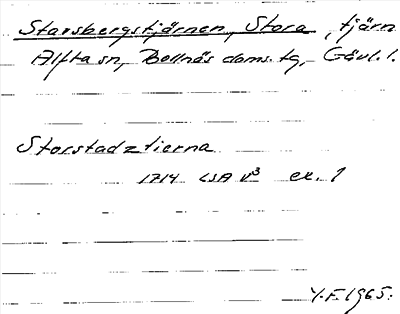 Starsbergstjärnen, Stora, tjärn
Alfta sn, Bollnäs doms. tg, Gävl. l.
Storstadztierna
1714 LSA V³ ex. 1
Y.F. 1965.